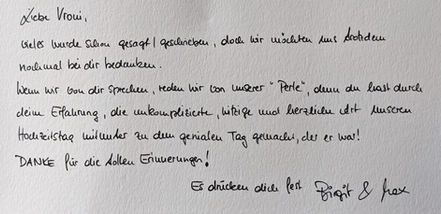 Liebe Vroni,
vieles wurde schon gesagt / geschrieben, doch wir möchten uns trotzdem
nochmal bei dir bedanken.
Wenn wir von dir sprechen, reden wir von unserer "Perle", denn du hast durch
deine Erfahrung, die unkomplizierte, witzige und herzliche Art unseren
Hochzeitstag mitunter zu dem genialen Tag gemacht, der er war!
DANKE für die tollen Erinnerungen!
Es drücken dich fest Birgit & Max